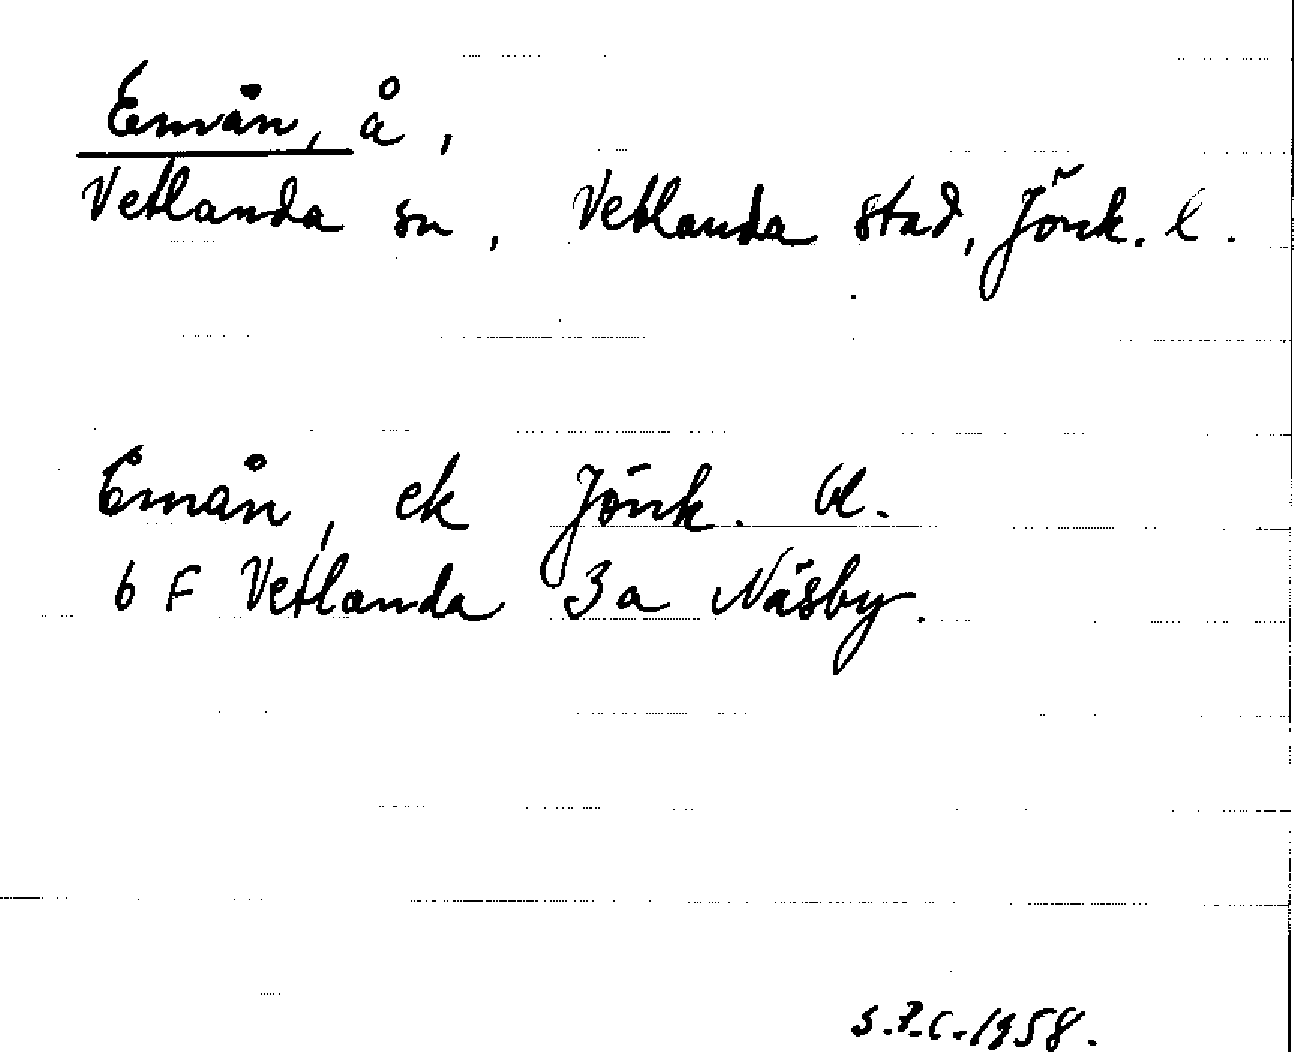 Emån, å,
Vetlanda sn, Vetlanda stad, Jönk. l.
Emån, ek Jönk. bl.
6 F Vetlanda 3a Näsby.
1958.